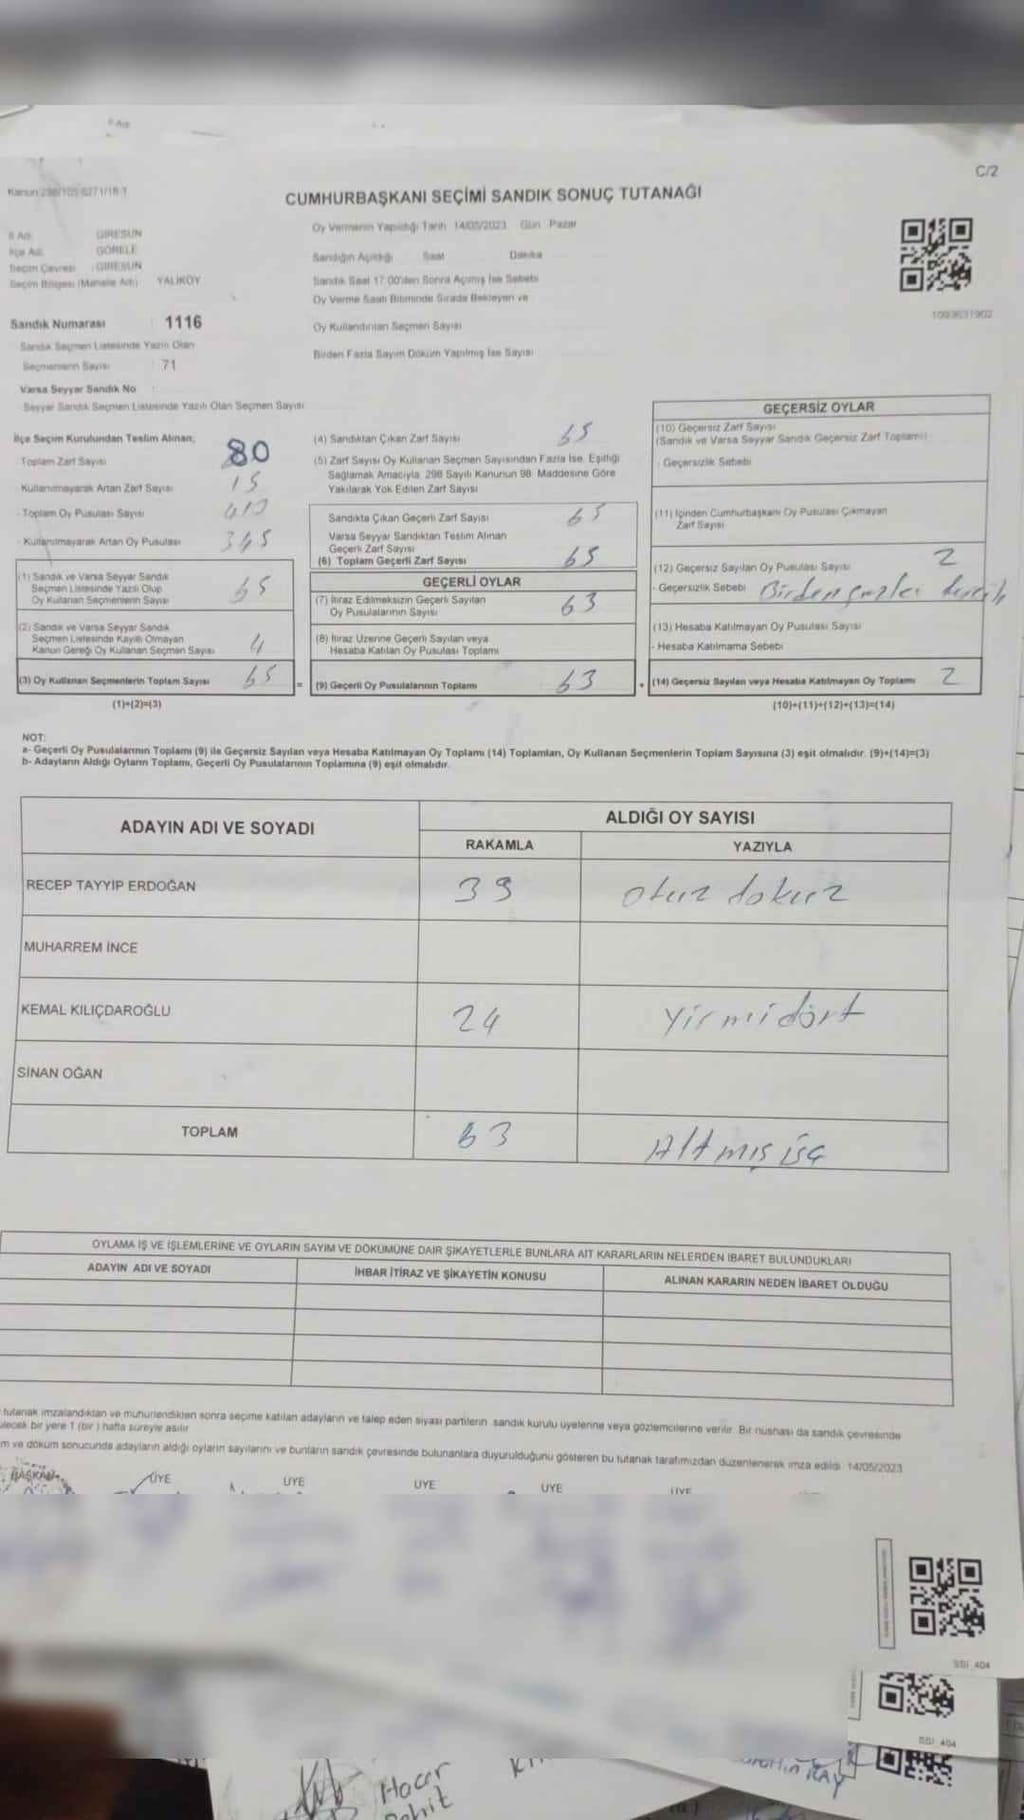 C/2
CUMHURBAŞKANI SEÇİMİ SANDIK SONUÇ TUTANAĞI
İl Adı GİRESUN
İlçe Adı GÖRELE
Seçim Çevresi : GİRESUN
Seçim Bölgesi (Mahalle Adı) YALIKÖY
Sandık Numarası 1116
Sandık Seçmen Listesinde Yazılı Olan
Seçmenlerin Sayısı 71
Varsa Seyyar Sandık No
Seyyar Sandık Seçmen Listesinde Yazılı Olan Seçmen Sayısı
Oy Vermenin Yapıldığı Tarih 14/05/2023 Gün Pazar
Sandığın Açıldığı Saat Dakika
Sandık Saat 17:00'den Sonra Açılmış İse Sebebi
Oy Verme Saati Bitiminde Sırada Bekleyen ve
Oy Kullandırılan Seçmen Sayısı
Birden Fazla Sayım Döküm Yapılmış İse Sayısı
İlçe Seçim Kurulundan Teslim Alınan;
Toplam Zarf Sayısı 80
Kullanılmayarak Artan Zarf Sayısı 15
- Toplam Oy Pusulası Sayısı
- Kullanılmayarak Artan Oy Pusulası 345
(1) Sandık ve Varsa Seyyar Sandık
Seçmen Listesinde Yazılı Olup
Oy Kullanan Seçmenlerin Sayısı 65
(2) Sandık ve Varsa Seyyar Sandık
Seçmen Listesinde Kayıtlı Olmayan
Kanun Gereği Oy Kullanan Seçmen Sayısı 4
(3) Oy Kullanan Seçmenlerin Toplam Sayısı 65 =
(1)+(2)=(3)
(4) Sandıktan Çıkan Zarf Sayısı 65
(5) Zarf Sayısı Oy Kullanan Seçmen Sayısından Fazla İse, Eşitliği
Sağlamak Amacıyla 298 Sayılı Kanunun 98. Maddesine Göre
Yakılarak Yok Edilen Zarf Sayısı
Sandıkta Çıkan Geçerli Zarf Sayısı 65
Varsa Seyyar Sandıktan Teslim Alınan
Geçerli Zarf Sayısı
(6) Toplam Geçerli Zarf Sayısı 65
GEÇERLİ OYLAR
(7) İtiraz Edilmeksizin Geçerli Sayılan
Oy Pusulalarının Sayısı 63
(8) İtiraz Üzerine Geçerli Sayılan veya
Hesaba Katılan Oy Pusulası Toplamı
(9) Geçerli Oy Pusulalarının Toplamı 63 +
GEÇERSİZ OYLAR
(10) Geçersiz Zarf Sayısı
(Sandık ve Varsa Seyyar Sandık Geçersiz Zarf Toplamı)
- Geçersizlik Sebebi
(11) İçinden Cumhurbaşkanı Oy Pusulası Çıkmayan
Zarf Sayısı
(12) Geçersiz Sayılan Oy Pusulası Sayısı 2
- Geçersizlik Sebebi Birden
(13) Hesaba Katılmayan Oy Pusulası Sayısı
- Hesaba Katılmama Sebebi
(14) Geçersiz Sayılan veya Hesaba Katılmayan Oy Toplamı 2
(10)+(11)+(12)+(13)=(14)
NOT:
a- Geçerli Oy Pusulalarının Toplamı (9) ile Geçersiz Sayılan veya Hesaba Katılmayan Oy Toplamı (14) Toplamları, Oy Kullanan Seçmenlerin Toplam Sayısına (3) eşit olmalıdır. (9)+(14)=(3)
b- Adayların Aldığı Oyların Toplamı, Geçerli Oy Pusulalarının Toplamına (9) eşit olmalıdır.
ADAYIN ADI VE SOYADI
ALDIĞI OY SAYISI
RAKAMLA YAZIYLA
RECEP TAYYİP ERDOĞAN 39 otuz dokuz
MUHARREM İNCE
KEMAL KILIÇDAROĞLU 24 Yirmidört
SİNAN OĞAN
TOPLAM 63 Altmış üç
OYLAMA İŞ VE İŞLEMLERİNE VE OYLARIN SAYIM VE DÖKÜMÜNE DAİR ŞİKAYETLERLE BUNLARA AİT KARARLARIN NELERDEN İBARET BULUNDUKLARI
ADAYIN ADI VE SOYADI İHBAR İTİRAZ VE ŞİKAYETİN KONUSU ALINAN KARARIN NEDEN İBARET OLDUĞU
tutanak imzalandıktan ve mühürlendikten sonra seçime katılan adayların ve talep eden siyasi partilerin sandık kurulu üyelerine veya gözlemcilerine verilir. Bir nüshası da sandık çevresinde
bir yere 1 (bir) hafta süreyle asılır
ve döküm sonucunda adayların aldığı oyların sayılarını ve bunların sandık çevresinde bulunanlara duyurulduğunu gösteren bu tutanak tarafımızdan düzenlenerek imza edildi. 14/05/2023
BAŞKAN ÜYE ÜYE ÜYE ÜYE ÜYE
SSI 404
SSI 404
Hacer